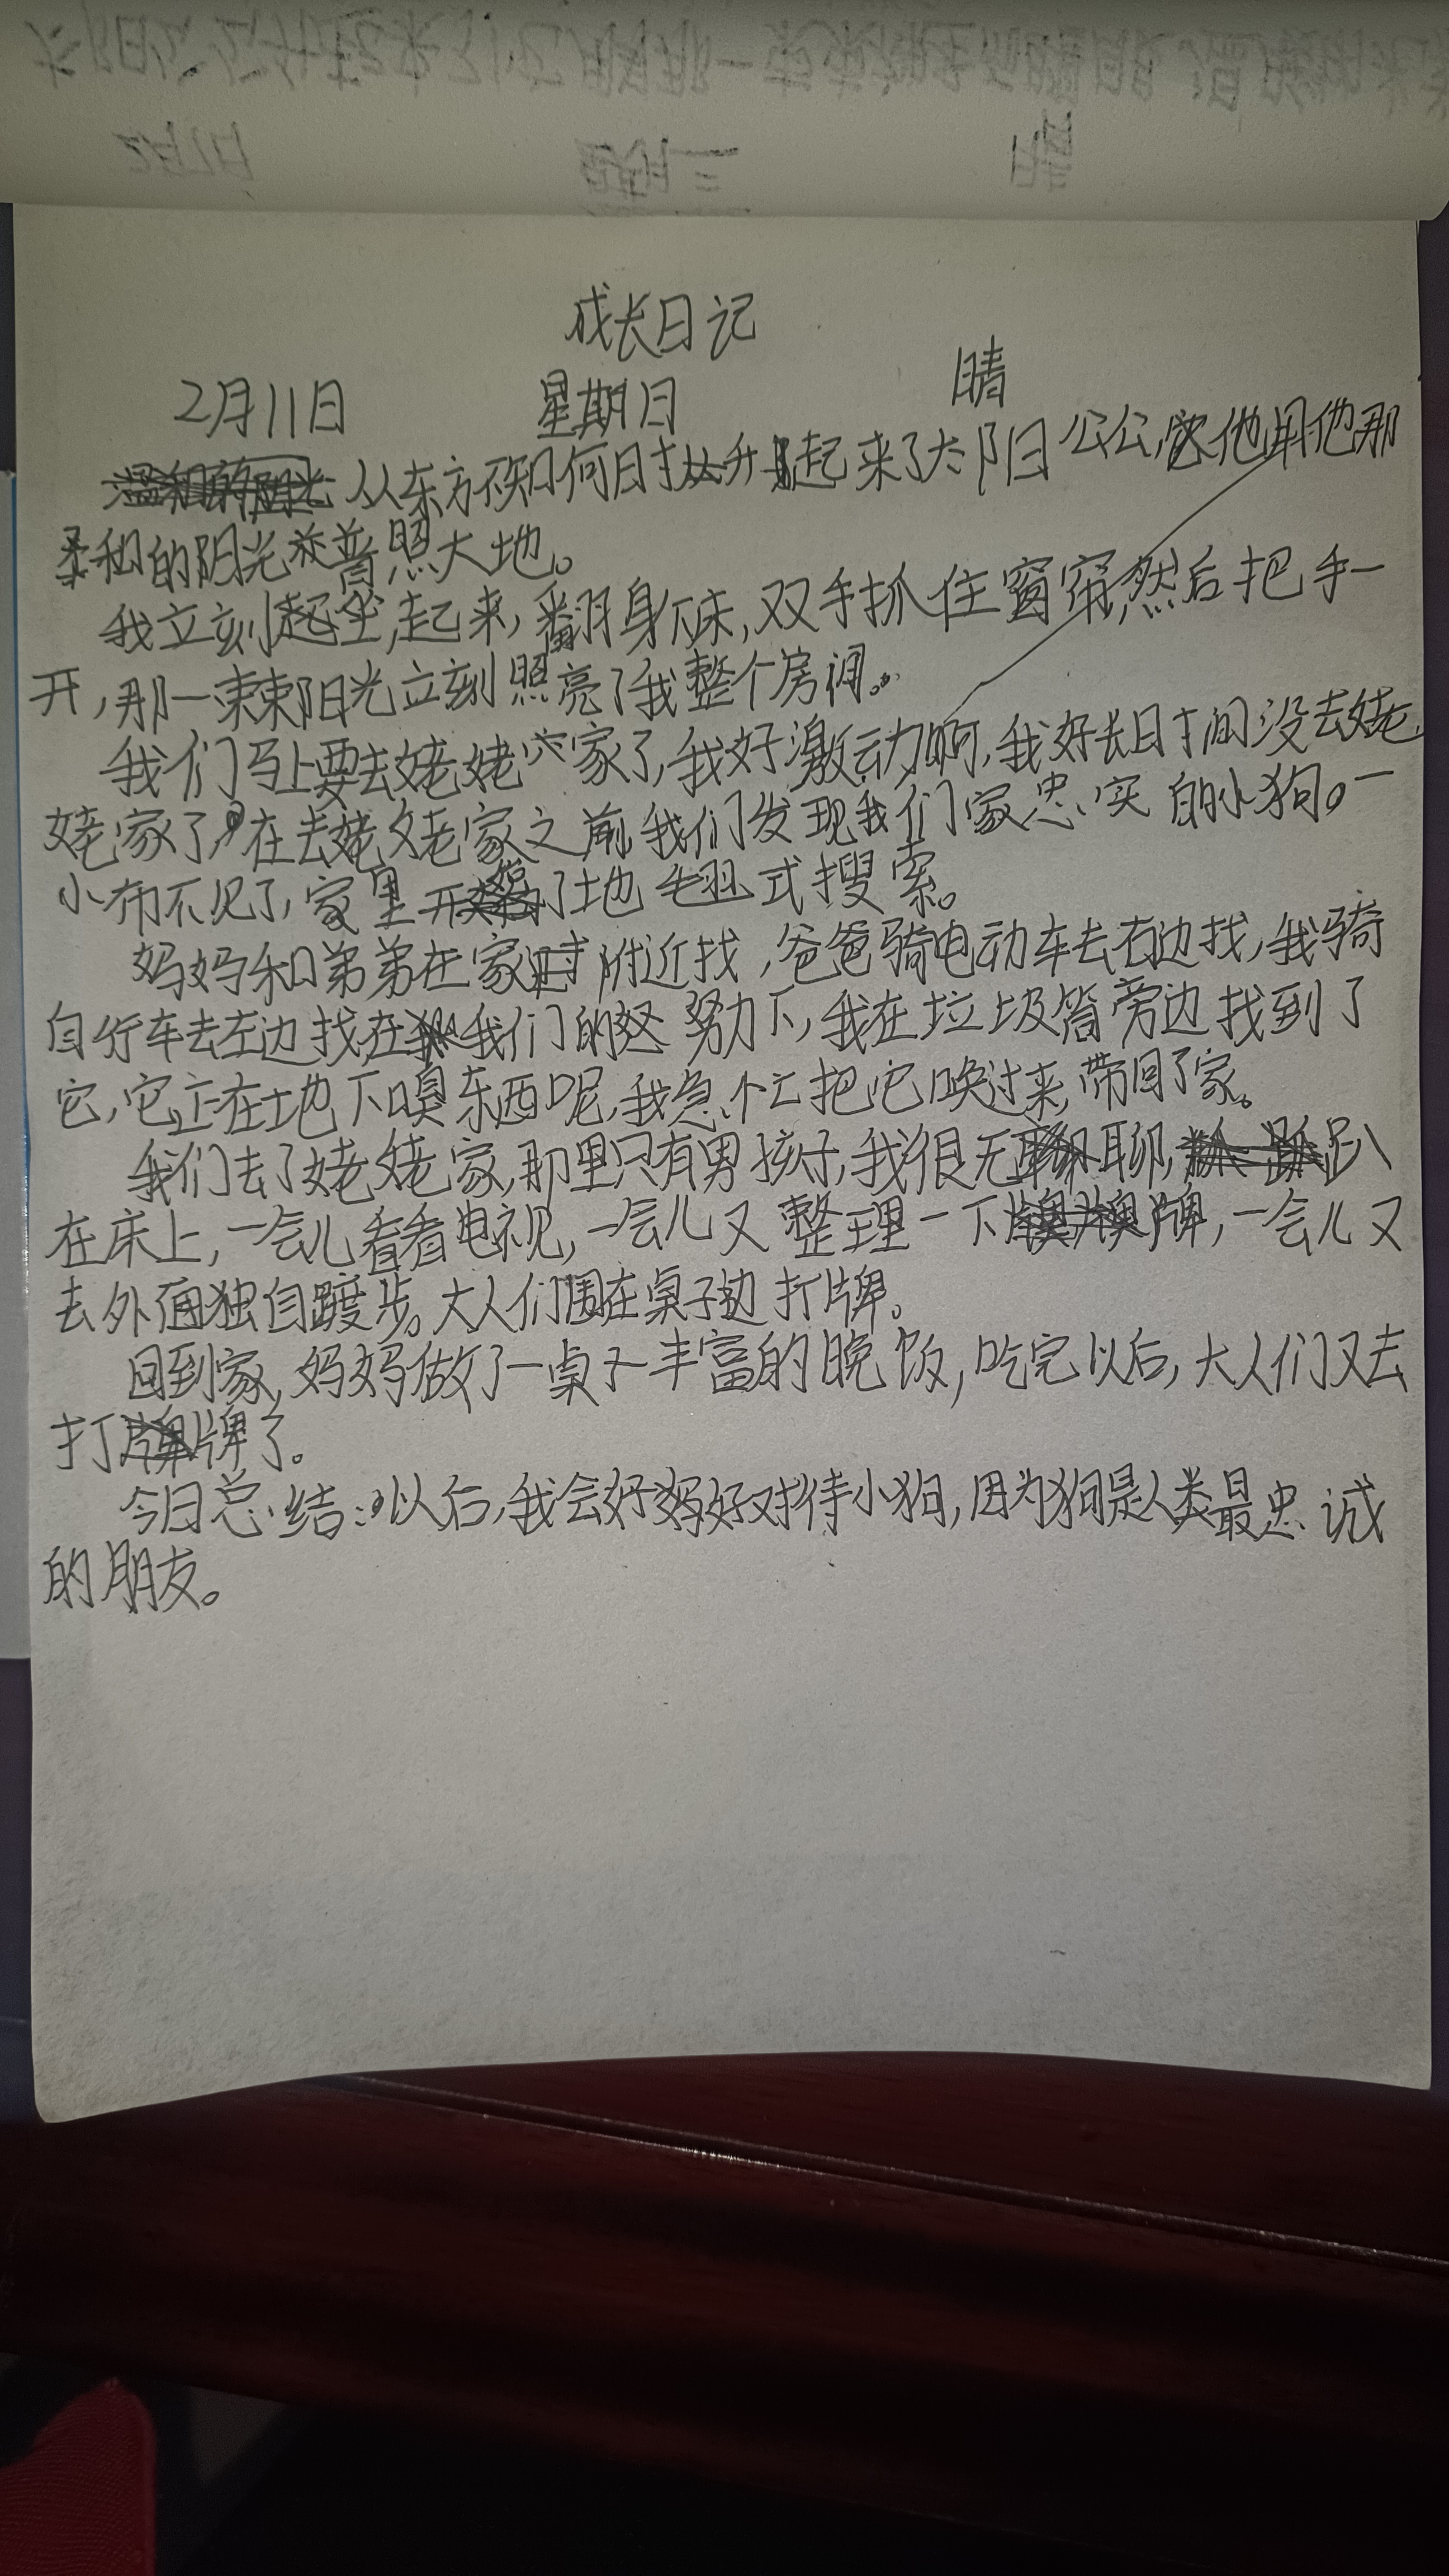 成长日记
2月11日 星期日 晴
从东方不知何时升起来了太阳公公,他用他那
柔和的阳光普照大地。
我立刻坐起来,翻身下床,双手抓住窗帘,然后把手一
开,那一束束阳光立刻照亮了我整个房间。
我们马上要去姥姥家了,我好激动啊,我好长时间没去姥
姥家了,在去姥姥家之前我们发现我们家忠实的小狗。一
小布不见了,家里开了地毯式搜索。
妈妈和弟弟在家附近找,爸爸骑电动车去右边找,我骑
自行车去左边找,在我们的努力下,我在垃圾筒旁边找到了
它,它正在地下嗅东西呢,我急忙把它唤过来,带回了家。
我们去了姥姥家,那里只有男孩子,我很无聊,趴
在床上,一会儿看看电视,一会儿又整理一下牌,一会儿又
去外面独自踱步。大人们围在桌子边打牌。
回到家,妈妈做了一桌丰富的晚饭,吃完以后,大人们又去
打牌了。
今日总结:以后,我会好好对待小狗,因为狗是人类最忠诚
的朋友。